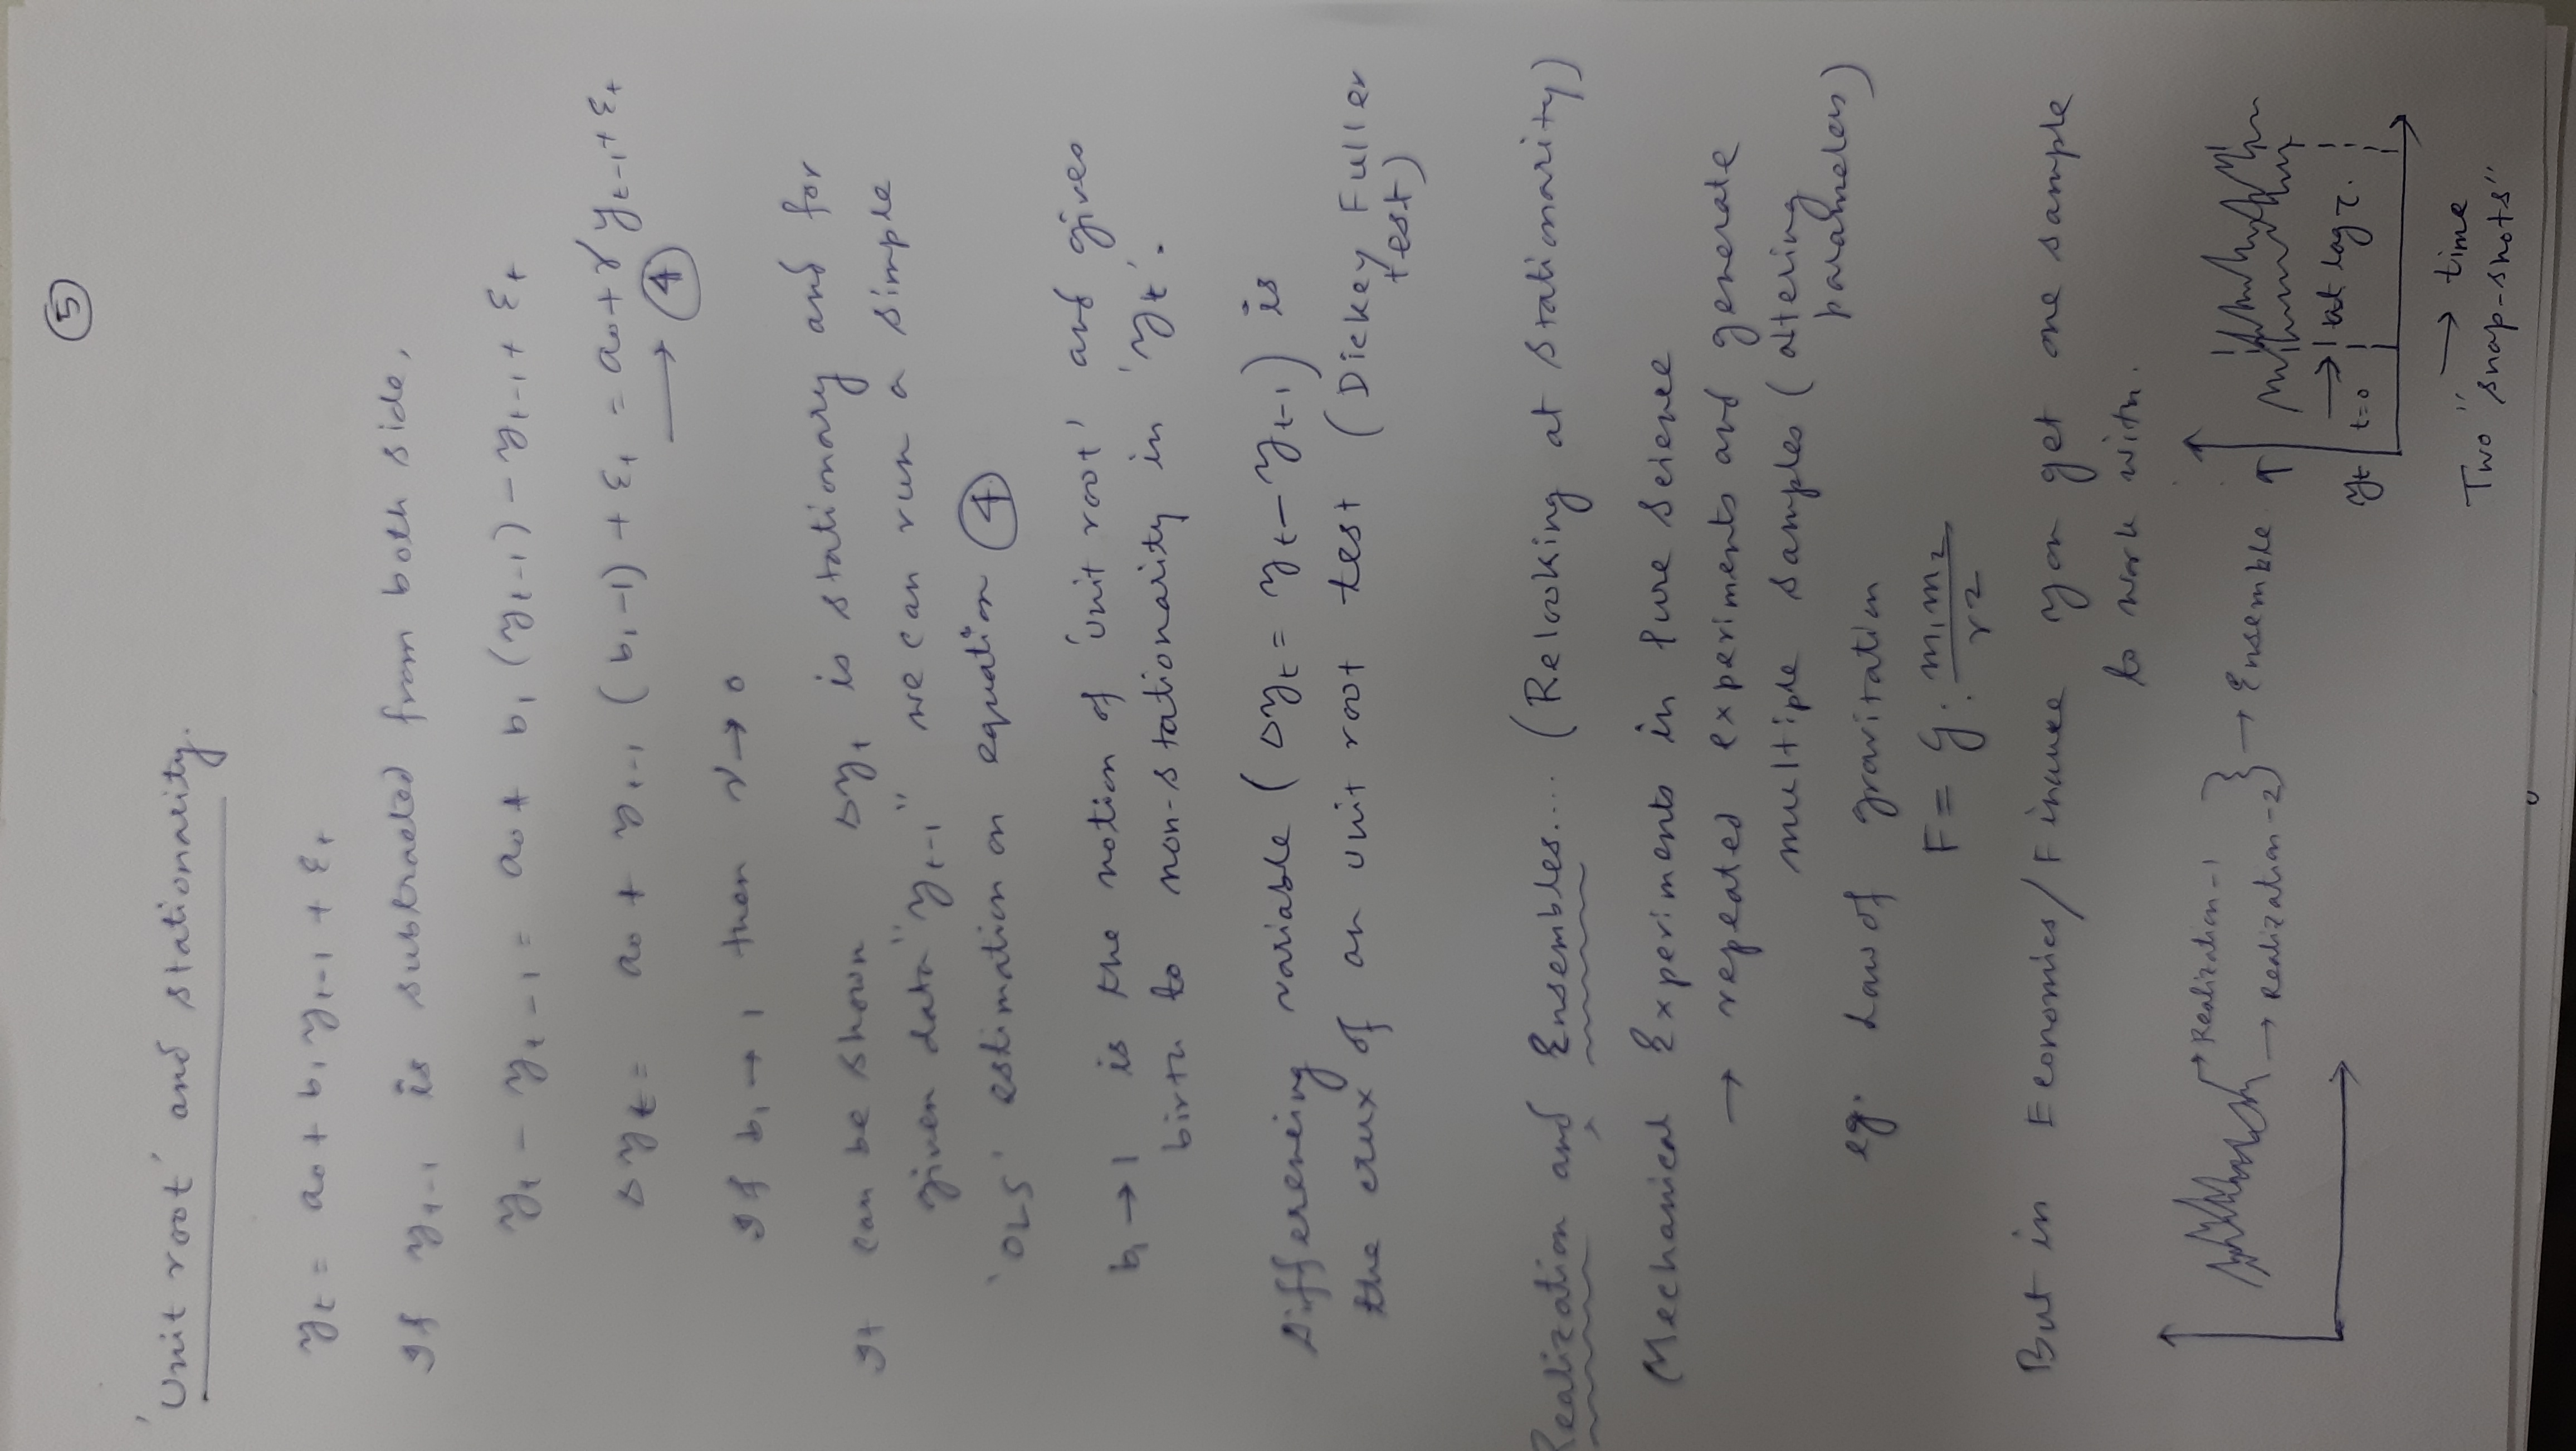 5
'Unit root' and stationarity.
yₜ = a₀ + b₁ yₜ₋₁ + εₜ
If yₜ₋₁ is subtracted from both side,
yₜ - yₜ₋₁ = a₀ + b₁ (yₜ₋₁) - yₜ₋₁ + εₜ
Δyₜ = a₀ + yₜ₋₁ (b₁-1) + εₜ = a₀ + γ yₜ₋₁ + εₜ
→ ④
If b₁ → 1 then γ → 0
It can be shown Δyₜ is stationary and for
given data "yₜ₋₁" we can run a simple
'OLS' estimation on equation ④
b₁ → 1 is the notion of 'unit root' and gives
birth to non-stationarity in 'yₜ'.
Differencing variable (Δyₜ = yₜ - yₜ₋₁) is
the crux of an unit root test (Dickey Fuller
test)
Realization and Ensembles.... (Relooking at Stationarity)
Mechanical Experiments in Pure Science
→ repeated experiments and generate
multiple samples (altering
parameters)
eg. Law of gravitation
F = G. m₁m₂ / r2
But in Economics/Finance you get one sample
to work with.
→ Realization-1
→ Realization-2 } → Ensemble
yₜ t=0 → at lag τ.
→ time
Two "snap-shots"